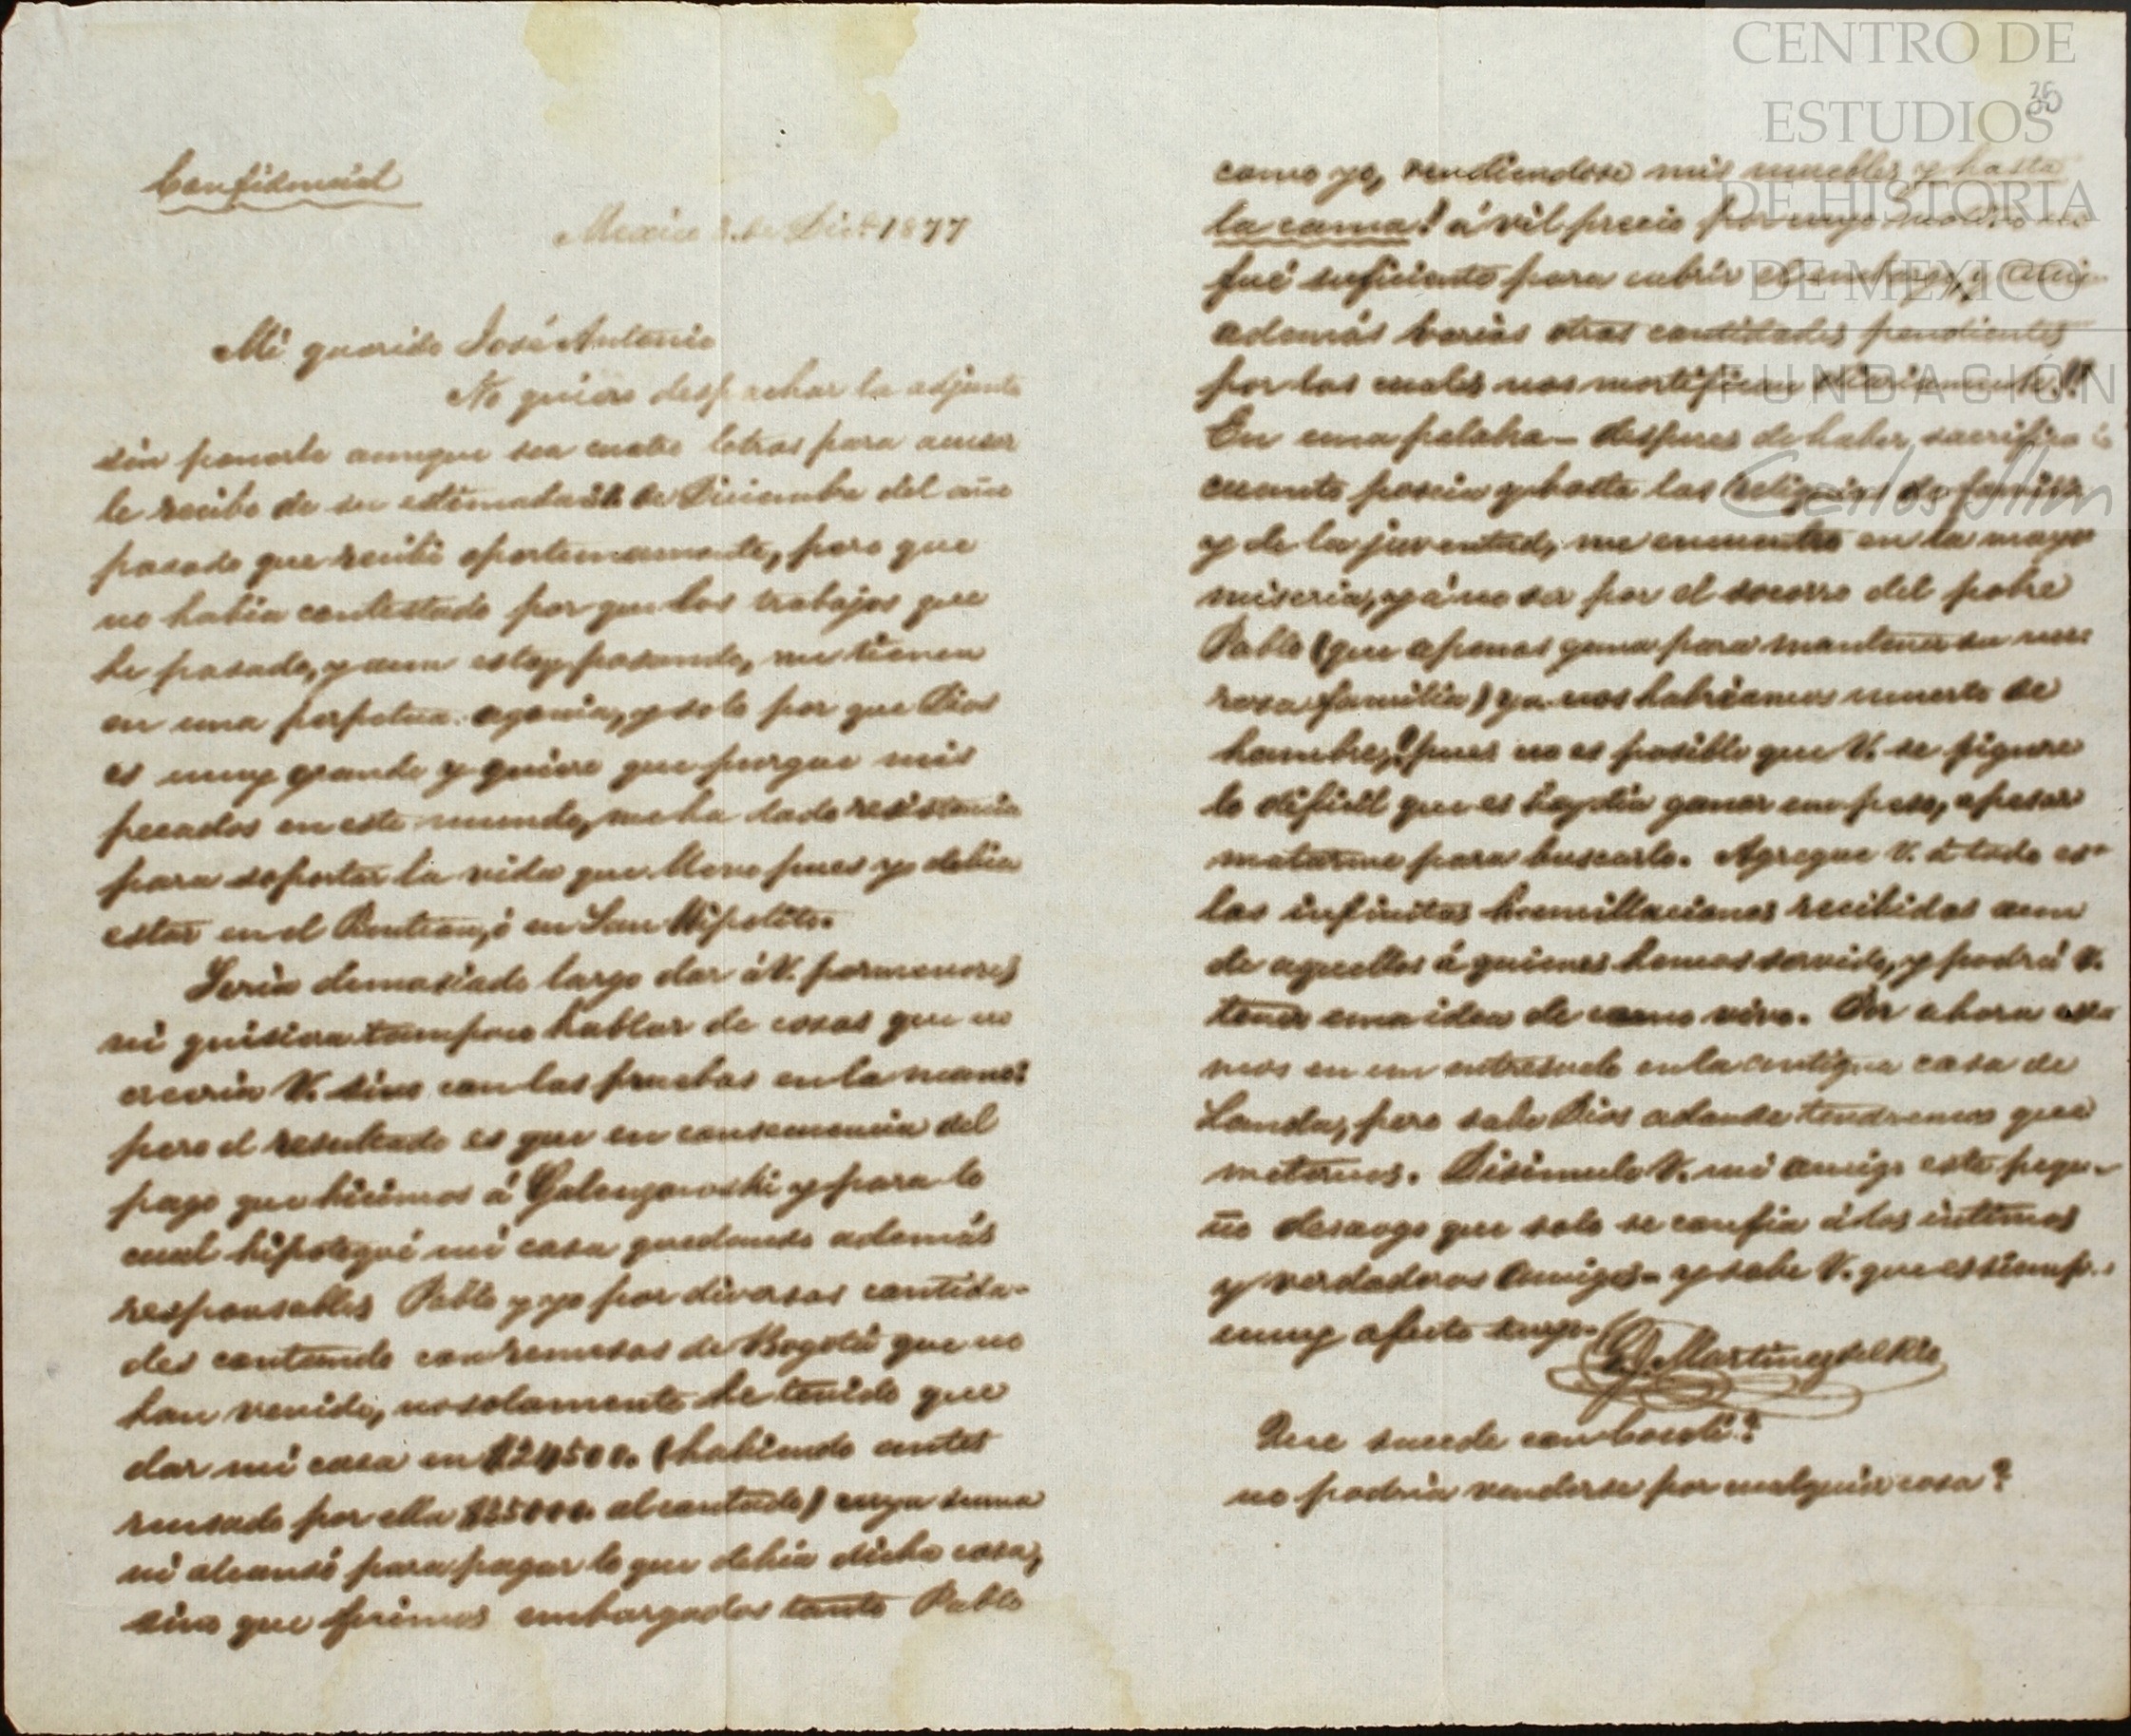 Confidencial
Mexico 3. de Dice 1877
Mi querido José Antonio
No quiero despachar la adjunta
sin ponerle aunque sea cuatro letras para acusar
le recibo de su estimada de Diciembre del año
pasado que recibí oportunamente, pero que
no habia contestado por que los trabajos que
he pasado, y aun estoy pasando, me tienen
en una perpetua agonia, y solo por que Dios
es muy grande y quiere que purgue mis
pecados en este mundo, me ha dado resistencia
para soportar la vida que llevo pues yo debia
estar en el Panteon, ó en San Hipolito.
Seria demasiado largo dar á V. pormenores
ni quisiera tampoco hablar de cosas que no
creeria V. sino con las pruebas en la mano:
pero el resultado es que en consecuencia del
pago que hicimos á Galenzowski y para lo
cual hipotequé mi casa quedando además
responsables Pablo y yo por diversas cantida-
des contando con remesas de Bogotá que no
han venido, no solamente he tenido que
dar mi casa en $24500. (habiendo antes
reusado por ella al contado) cuya suma
ni alcansó para pagar lo que debia dicha casa,
sino que fuimos embargados tanto Pablo
como yo, vendiendose mis muebles y hasta
la cama! á vil precio por cuyo motivo no
fué suficiente para cubrir el embargo, y
además varias otras cantidades pendientes
por las cuales nos mortifican diariamente!!
En una palabra - despues de haber sacrificado
cuanto poseia y hasta las reliquias de familia
y de la juventud, me encuentro en la mayor
miseria, y á no ser por el socorro del pobre
Pablo (que apenas gana para mantener su nume
rosa familia) ya nos habriamos muerto de
hambre,! pues no es posible que V. se figure
lo dificil que es hoy dia ganar un peso, apesar
matarme para buscarlo. Agregue V. á todo eso
las infinitas humillaciones recibidas aun
de aquellos á quienes hemos servido, y podrá V.
tener una idea de como vivo. Por ahora esta
mos en un entresuelo en la antigua casa de
Landa, pero sabe Dios adonde tendremos que
meternos. Disimule V. mi amigo este peque-
ño desaogo que solo se confia á los intimos
y verdaderos amigos - y sabe V. que es siempre
muy afecto suyo.
Martinez del Rio
Que sucede con Cocolé?
no podria venderse por cualquier cosa?
CENTRO DE
ESTUDIOS
DE HISTORIA
DE MEXICO
FUNDACIÓN
Carlos Slim